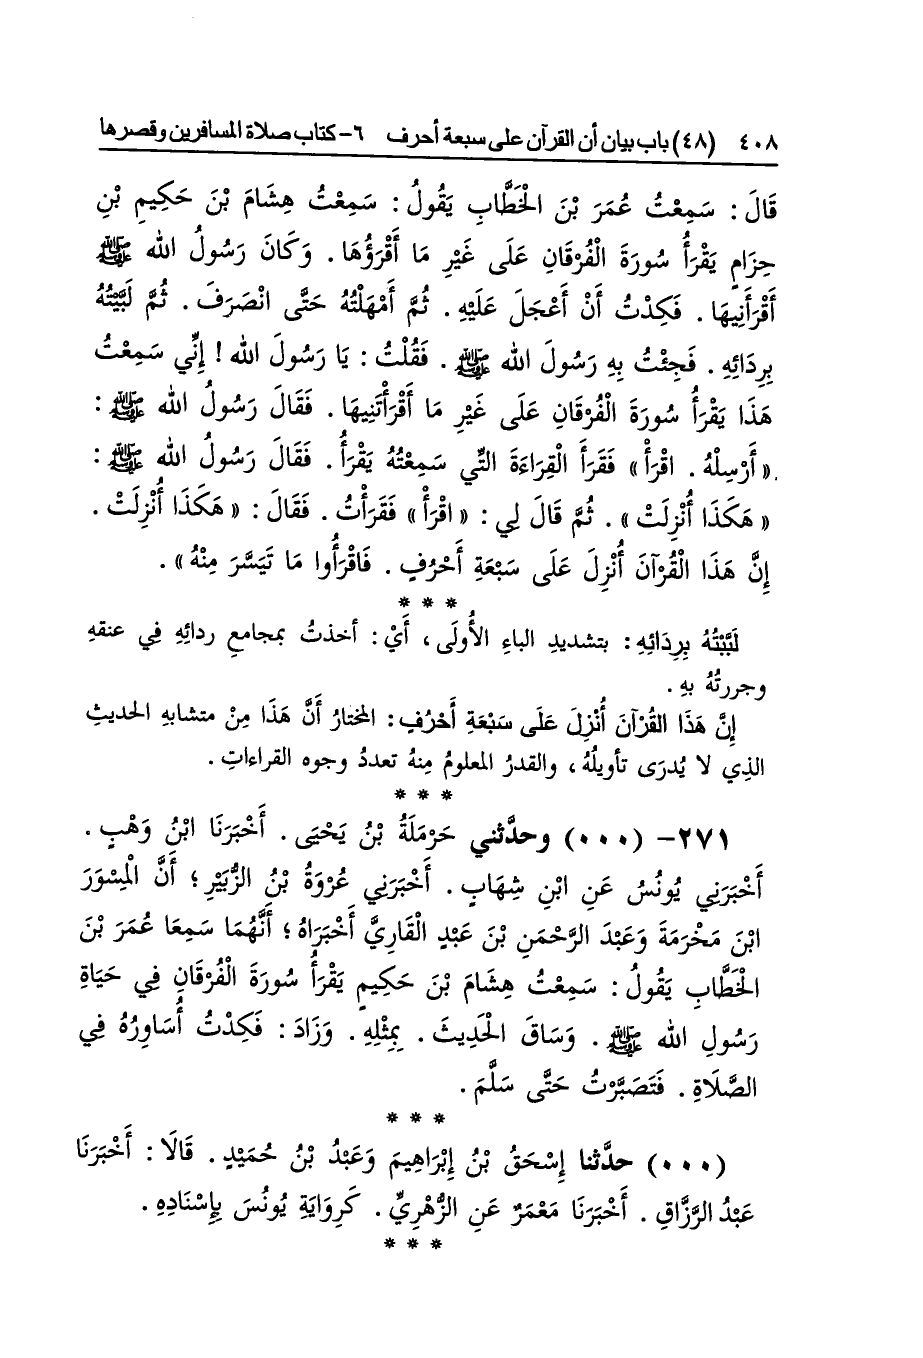 ٤٠٨ (٤٨) باب بيان أن القرآن على سبعة أحرف ٦- كتاب صلاة المسافرين وقصرها
قَالَ : سَمِعْتُ عُمَرَ بْنَ الْخَطَّابِ يَقُولُ : سَمِعْتُ هِشَامَ بْنَ حَكِيمِ بْنِ
حِزَامٍ يَقْرَأُ سُورَةَ الْفُرْقَانِ عَلَى غَيْرِ مَا أَقْرَؤُهَا . وَكَانَ رَسُولُ الله ﷺ
أَقْرَأَنِيهَا . فَكِدْتُ أَنْ أَعْجَلَ عَلَيْهِ . ثُمَّ أَمْهَلْتُهُ حَتَّى انْصَرَفَ . ثُمَّ لَبَّبْتُهُ
بِرِدَائِهِ . فَجِئْتُ بِهِ رَسُولَ الله ﷺ . فَقُلْتُ : يَا رَسُولَ الله ! إِنِّي سَمِعْتُ
هَذَا يَقْرَأُ سُورَةَ الْفُرْقَانِ عَلَى غَيْرِ مَا أَقْرَأْتَنِيهَا . فَقَالَ رَسُولُ الله ﷺ :
« أَرْسِلْهُ . اقْرَأْ » فَقَرَأَ الْقِرَاءَةَ الَّتِي سَمِعْتُهُ يَقْرَأُ . فَقَالَ رَسُولُ الله ﷺ :
« هَكَذَا أُنْزِلَتْ » . ثُمَّ قَالَ لِي : « اقْرَأْ » فَقَرَأْتُ . فَقَالَ : « هَكَذَا أُنْزِلَتْ .
إِنَّ هَذَا الْقُرْآنَ أُنْزِلَ عَلَى سَبْعَةِ أَحْرُفٍ . فَاقْرَأُوا مَا تَيَسَّرَ مِنْهُ » .
* * *
لَبَّبْتُهُ بِرِدَائِهِ : بتشديدِ الباءِ الأُولَى ، أَيْ : أخذتُ بمجامعِ ردائِهِ فِي عنقهِ
وجررتُهُ بهِ .
إِنَّ هَذَا القُرْآنَ أُنْزِلَ عَلَى سَبْعَةِ أَحْرُفٍ : المختارُ أَنَّ هَذَا مِنْ متشابهِ الحديثِ
الذِي لا يُدرَى تأويلُهُ ، والقدرُ المعلومُ مِنهُ تعددُ وجوه القراءاتِ .
* * *
٢٧١- (٠٠٠) وحدَّثني حَرْمَلَةُ بْنُ يَحْيَى . أَخْبَرَنَا ابْنُ وَهْبٍ .
أَخْبَرَنِي يُونُسُ عَنِ ابْنِ شِهَابٍ . أَخْبَرَنِي عُرْوَةُ بْنُ الزُّبَيْرِ ؛ أَنَّ الْمِسْوَرَ
ابْنَ مَخْرَمَةَ وَعَبْدَ الرَّحْمَنِ بْنَ عَبْدٍ الْقَارِيَّ أَخْبَرَاهُ ؛ أَنَّهُمَا سَمِعَا عُمَرَ بْنَ
الْخَطَّابِ يَقُولُ : سَمِعْتُ هِشَامَ بْنَ حَكِيمٍ يَقْرَأُ سُورَةَ الْفُرْقَانِ فِي حَيَاةِ
رَسُولِ الله ﷺ . وَسَاقَ الْحَدِيثَ . بِمِثْلِهِ . وَزَادَ : فَكِدْتُ أُسَاوِرُهُ فِي
الصَّلَاةِ . فَتَصَبَّرْتُ حَتَّى سَلَّمَ .
* * *
(٠٠٠) حدَّثنا إِسْحَقُ بْنُ إِبْرَاهِيمَ وَعَبْدُ بْنُ حُمَيْدٍ . قَالَا : أَخْبَرَنَا
عَبْدُ الرَّزَّاقِ . أَخْبَرَنَا مَعْمَرٌ عَنِ الزُّهْرِيِّ . كَرِوَايَةِ يُونُسَ بِإِسْنَادِهِ .
* * *